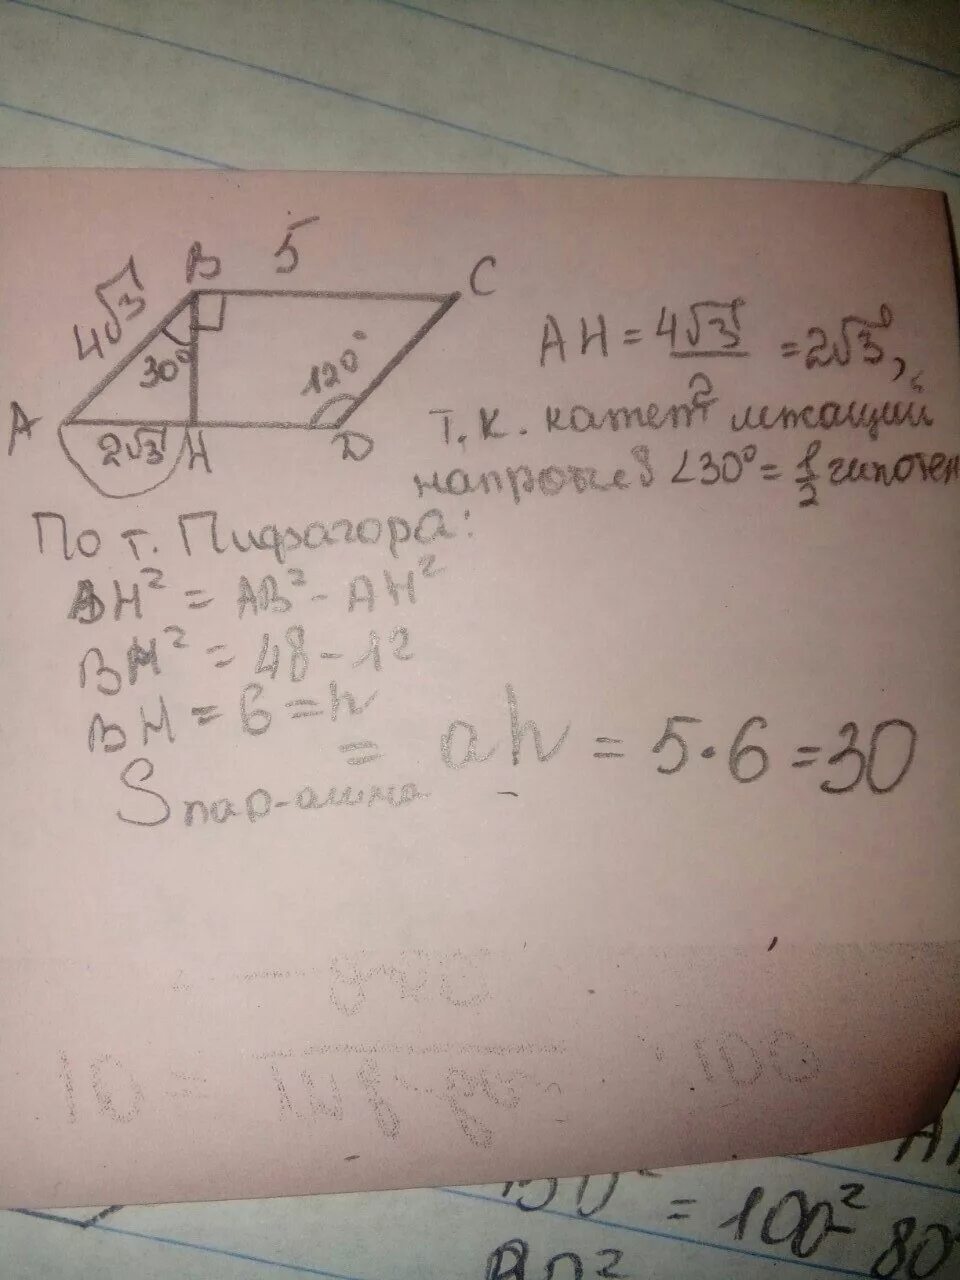 5
B
C
4√3
30°
120°
A
2√3
H
D
AH = 4√3/2 = 2√3,
т.к. катет лежащий
напротив ∠30° = 1/2 гипотен
По т. Пифагора:
BH² = AB² - AH²
BH² = 48 - 12
BH = 6 = h
Sпар-амма = ah = 5·6 = 30
= 100² 80